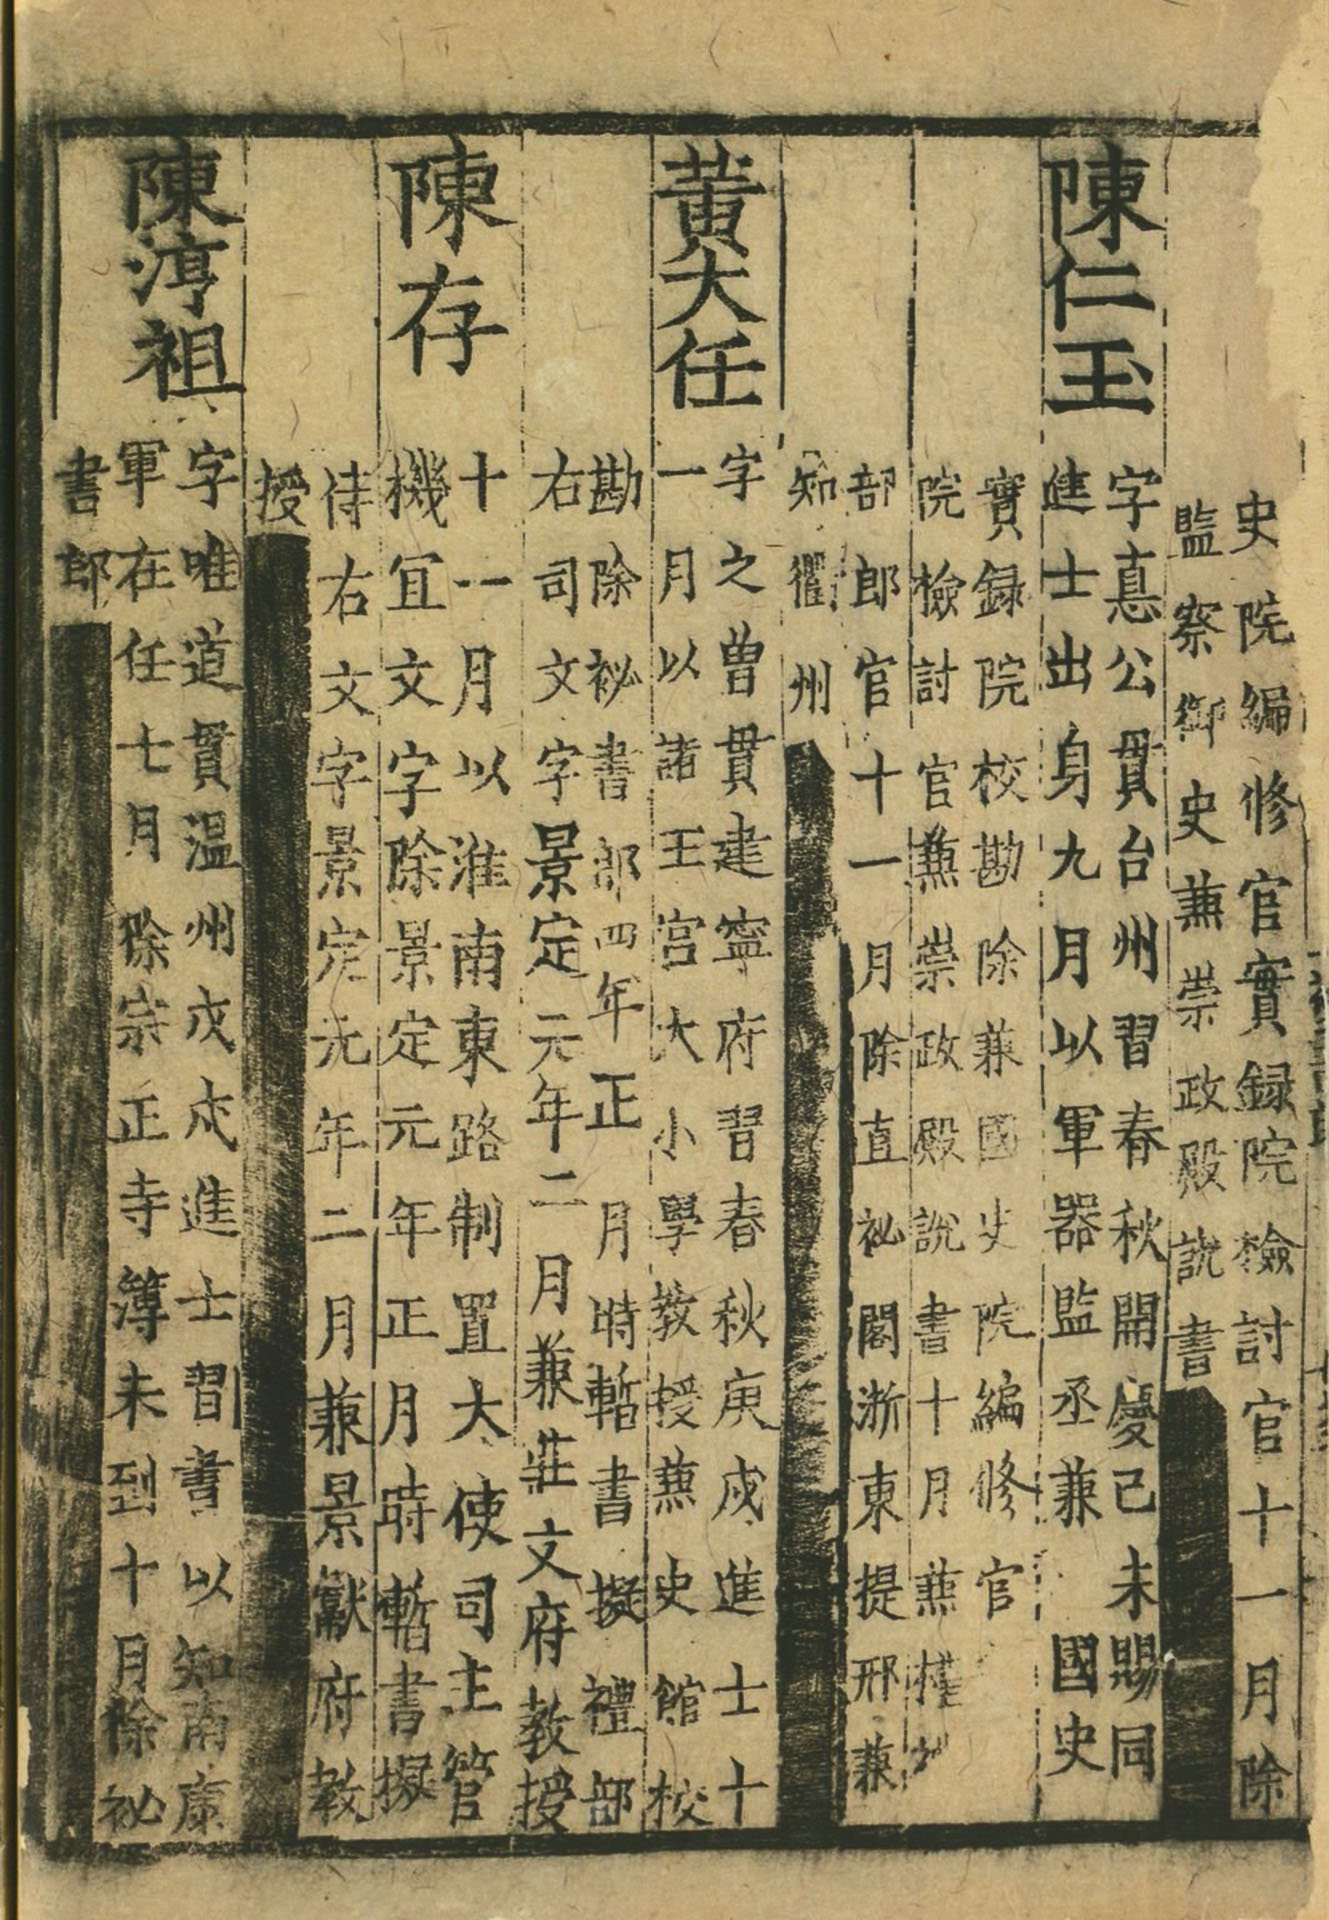 史院編修官實録院檢討官十一月除
監察御史兼崇政殿說書
陳仁玉
字惪公貫台州習春秋開慶己未賜同
進士出身九月以軍器監丞兼國史
實録院校勘除兼國史院編修官
院檢討官兼崇政殿說書十月兼權
部郎官十一月除直祕閣浙東提刑兼
知衢州
黃大任
字之曾貫建寧府習春秋庚戌進士十
一月以諸王宮大小學教授兼史館校
勘除祕書郎四年正月時暫書擬禮部
右司文字景定元年二月兼莊文府教授
陳存
十一月以淮南東路制置大使司主管
機宜文字除景定元年正月時暫書擬
侍右文字景定元年二月兼景獻府教
授
陳淳祖
字唯道貫温州戊戌進士習書以知南康
軍在任七月除宗正寺簿未到十月除祕
書郎